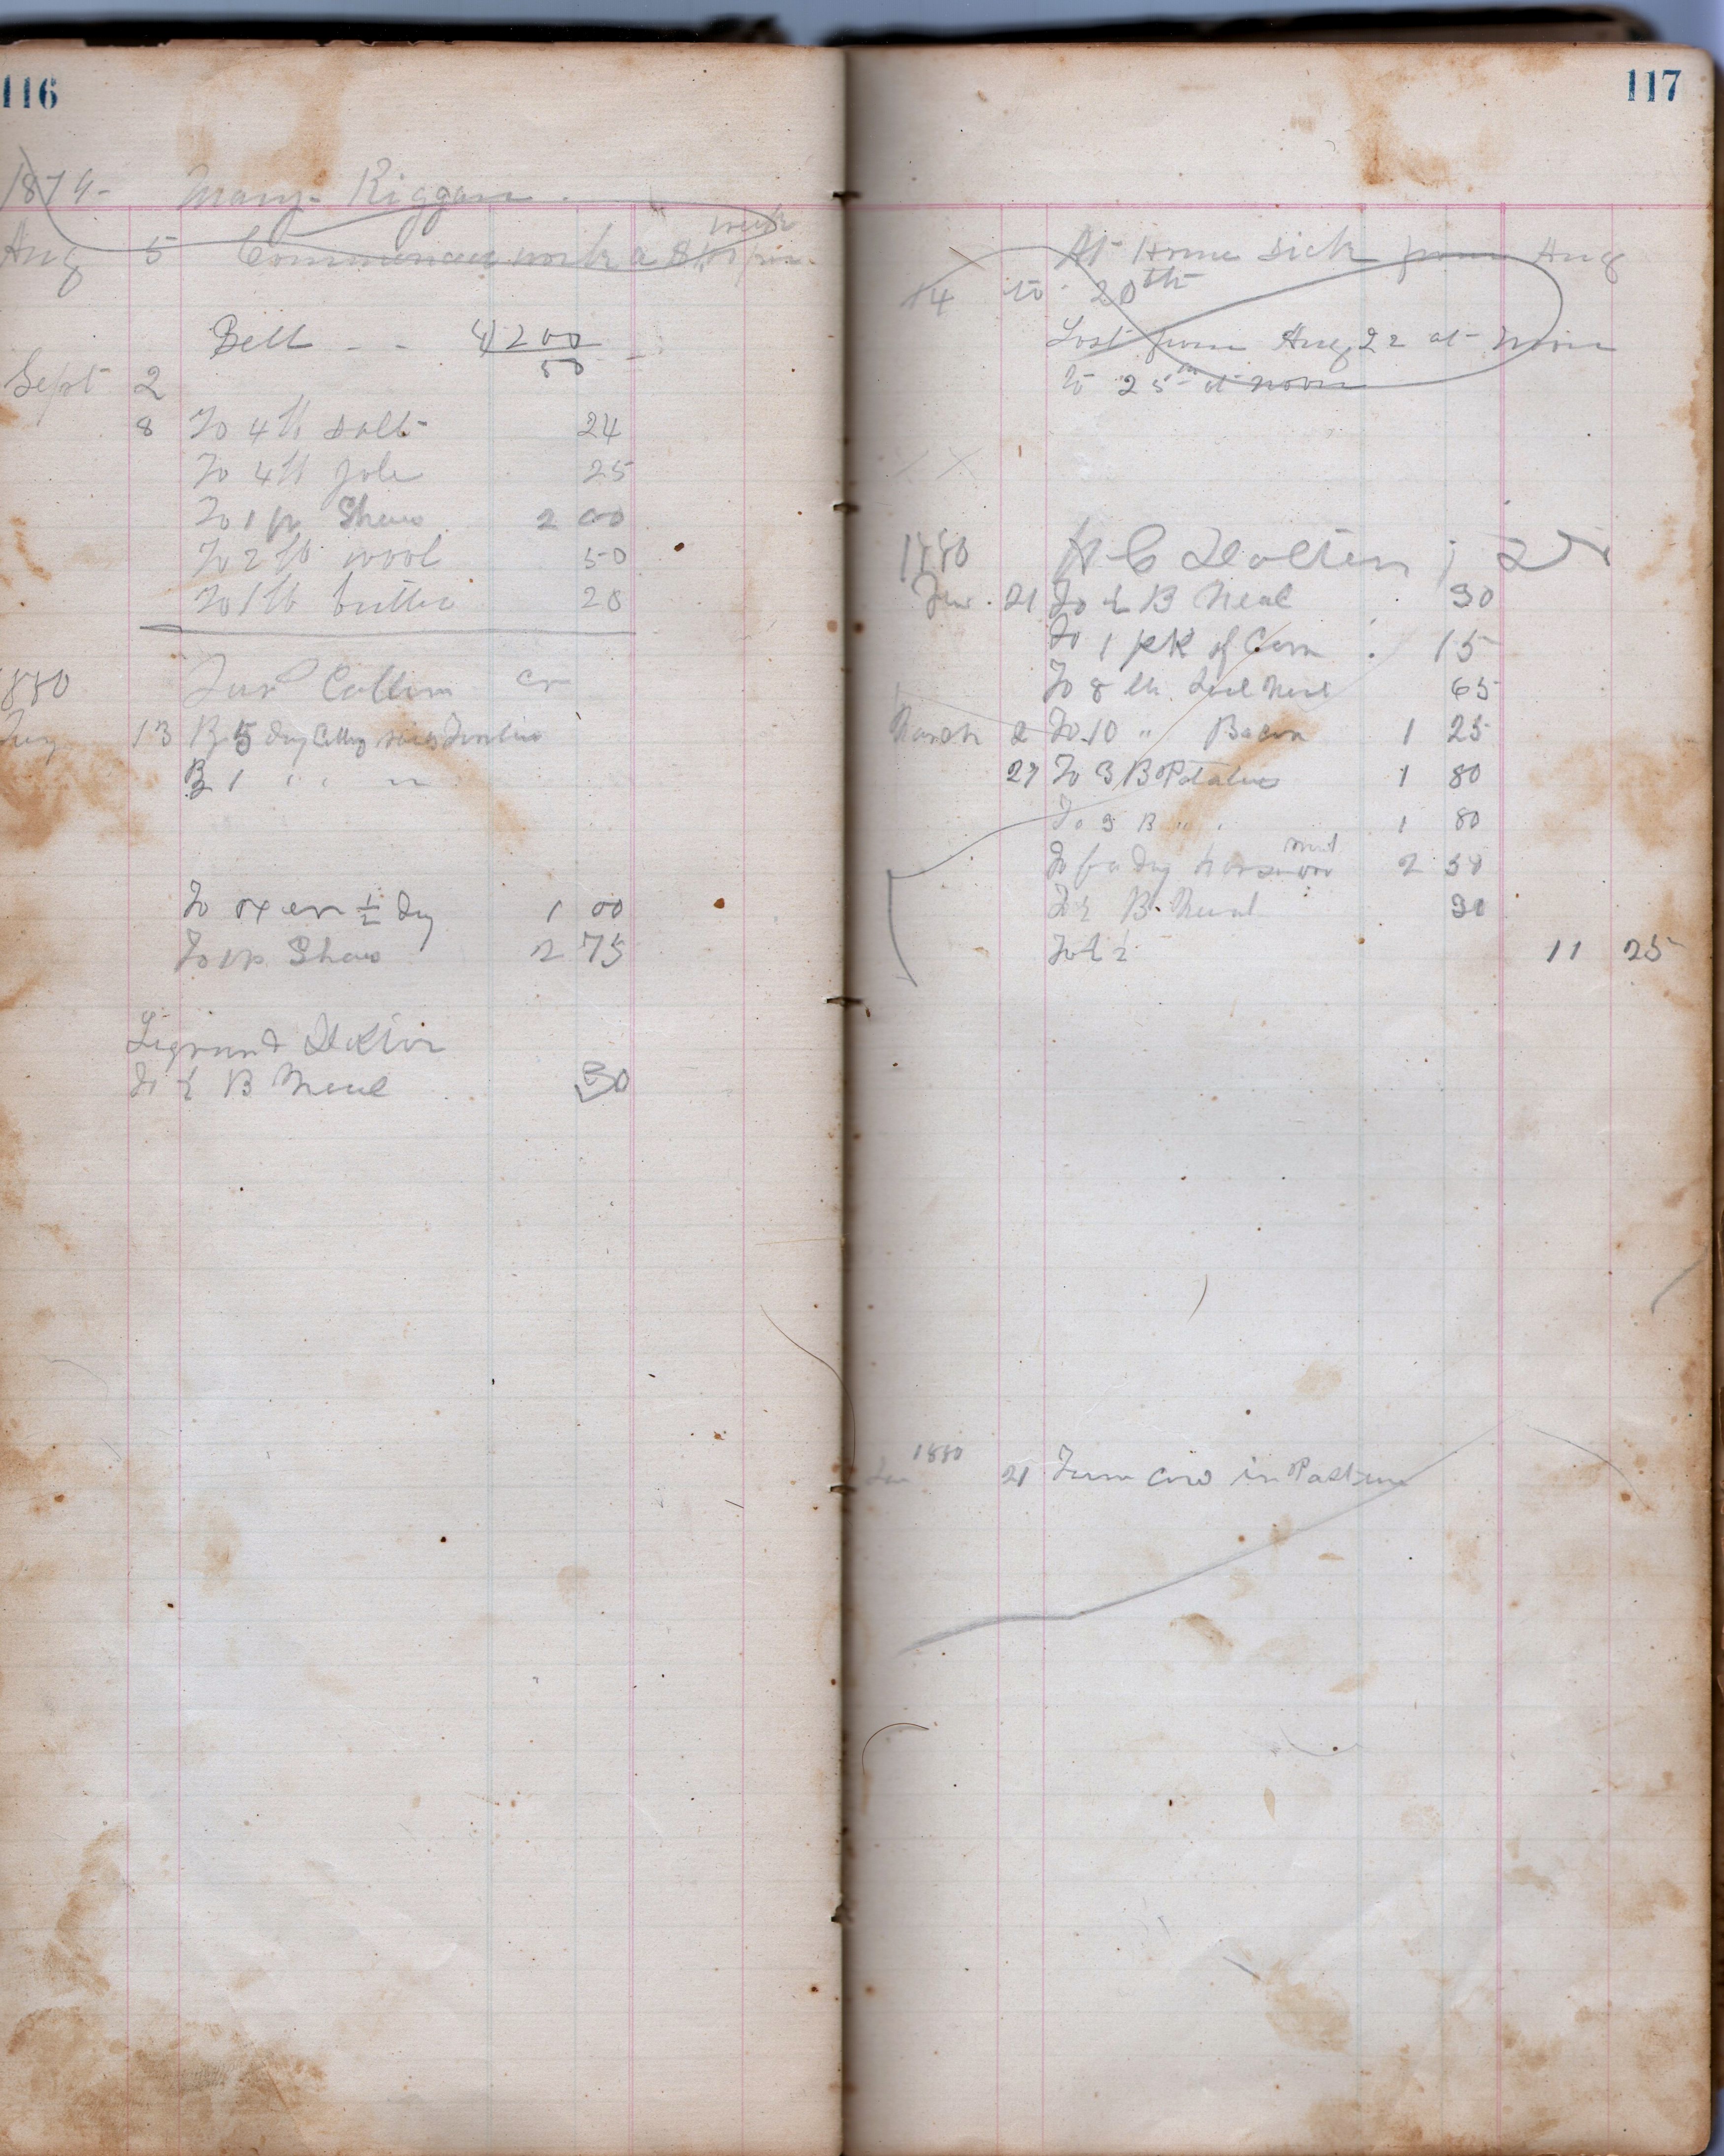 116
1874 Mary Riggan
Aug 5 Commences work a $1.00 per week
Bell - - $2 00
50
Sept 2
8 To 4 lb salt 24
To 4 lb 25
To 1 pr Shoes 2 00
To 2 lb wool 50
To 1 lb butter 20
1880 Collin Cr
13 By 5 day
By 1 " " "
To oxen 1/2 day 1 00
To 1 pr Shoes 2 75
Legrand
To 1/2 B Meal 30
117
At Home sick from Aug
14 to 20th
Lost from Aug 22 at noon
to 25th at noon
1880 Dr
21 To 1/2 B Meal 30
To 1 pk of Corn 15
To 8 lb Meal 65
March 2 To 10 " Bacon 1 25
27 To 3 B Potatoes 1 80
To 3 B " " 1 80
To day 2 50
To 1/2 B Meal 30
11 25
1880
Jan 21 Turn cow in Pasture